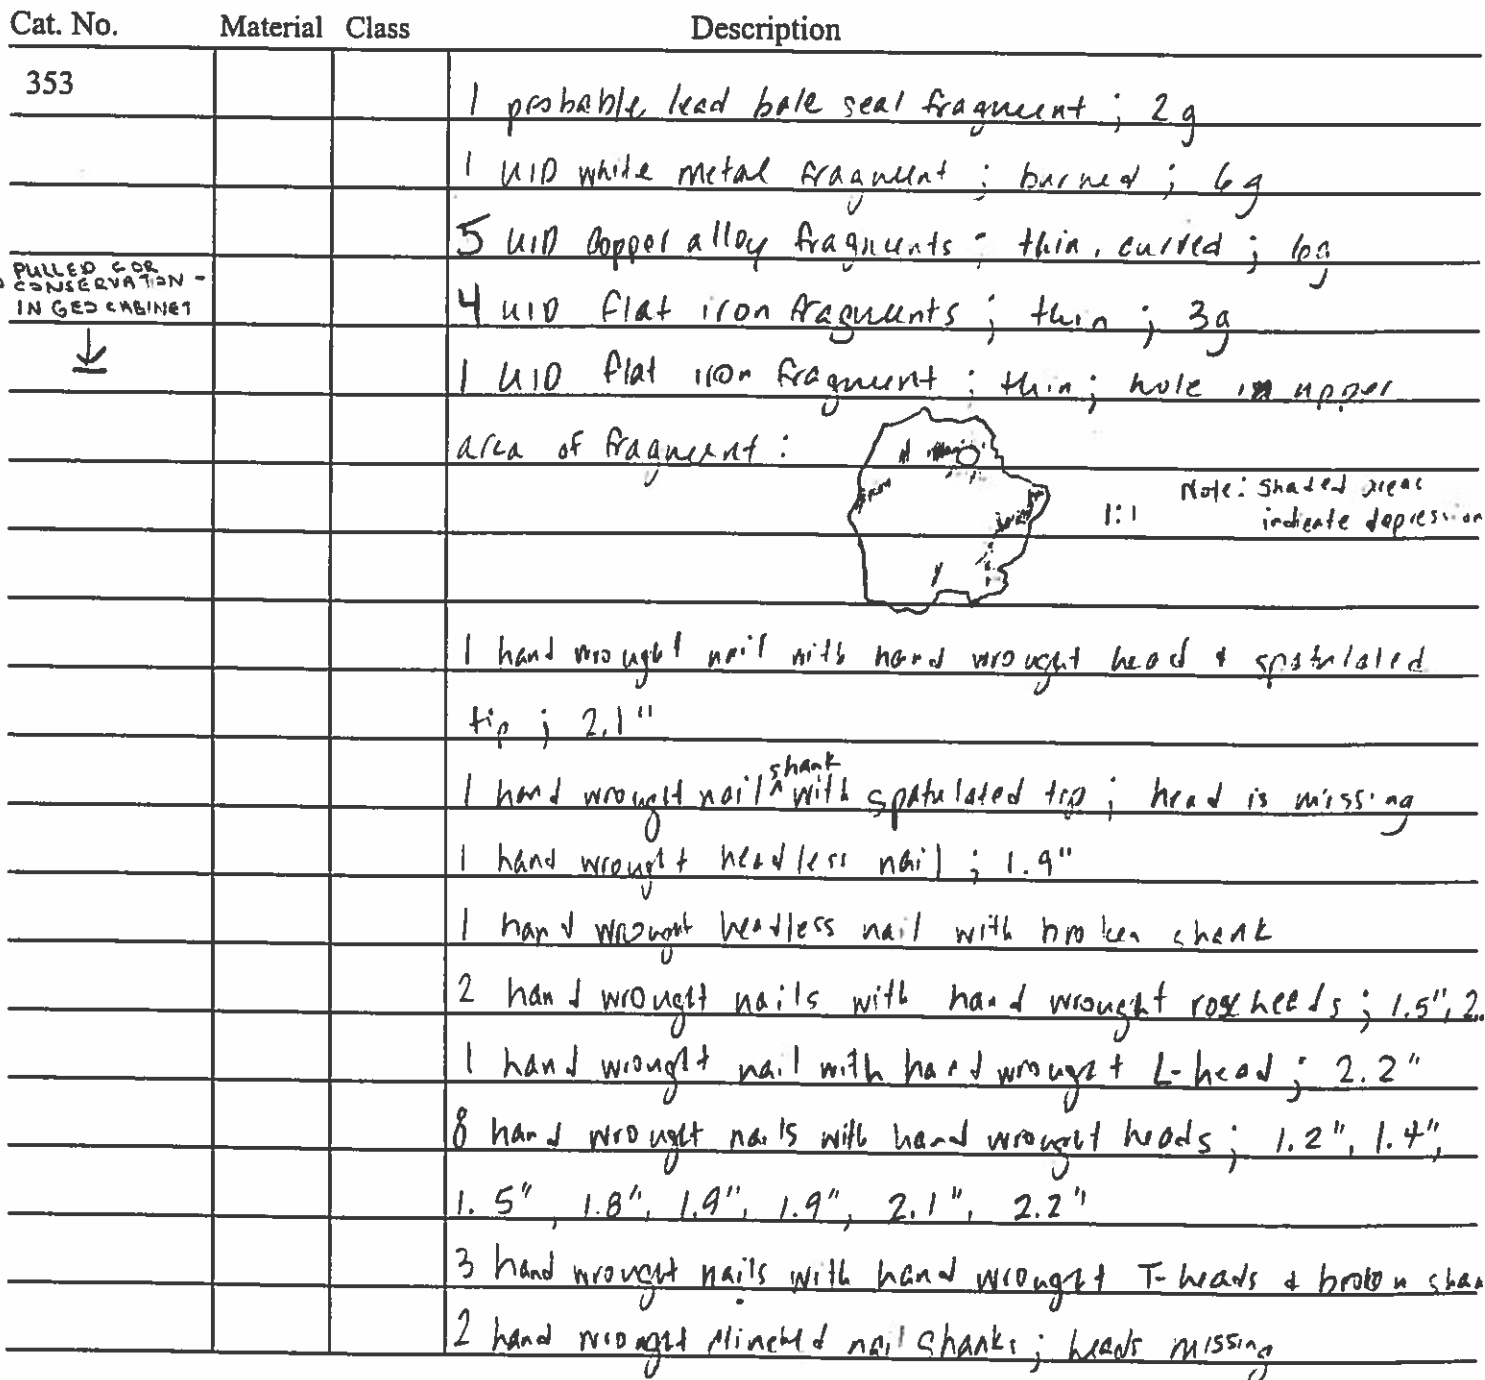 Cat. No. Material Class Description
353
1 probable lead bale seal fragment ; 2 g
1 UID white metal fragment ; burned ; 6 g
5 UID copper alloy fragments ; thin, curved ; 6g
PULLED FOR
CONSERVATION -
IN GEO CABINET
4 UID flat iron fragments ; thin ; 3g
1 UID flat iron fragment ; thin ; hole in upper
area of fragment :
1:1
Note: Shaded areas
indicate depression
1 hand wrought nail with hand wrought head & spatulated
tip ; 2.1"
1 hand wrought nail ^ shank with spatulated tip ; head is missing
1 hand wrought headless nail ; 1.9"
1 hand wrought headless nail with broken shank
2 hand wrought nails with hand wrought rose heads ; 1.5", 2.
1 hand wrought nail with hand wrought L-head ; 2.2"
8 hand wrought nails with hand wrought heads ; 1.2", 1.4",
1.5", 1.8", 1.9", 1.9", 2.1", 2.2"
3 hand wrought nails with hand wrought T-heads & broken shan
2 hand wrought clinched nail shanks ; heads missing